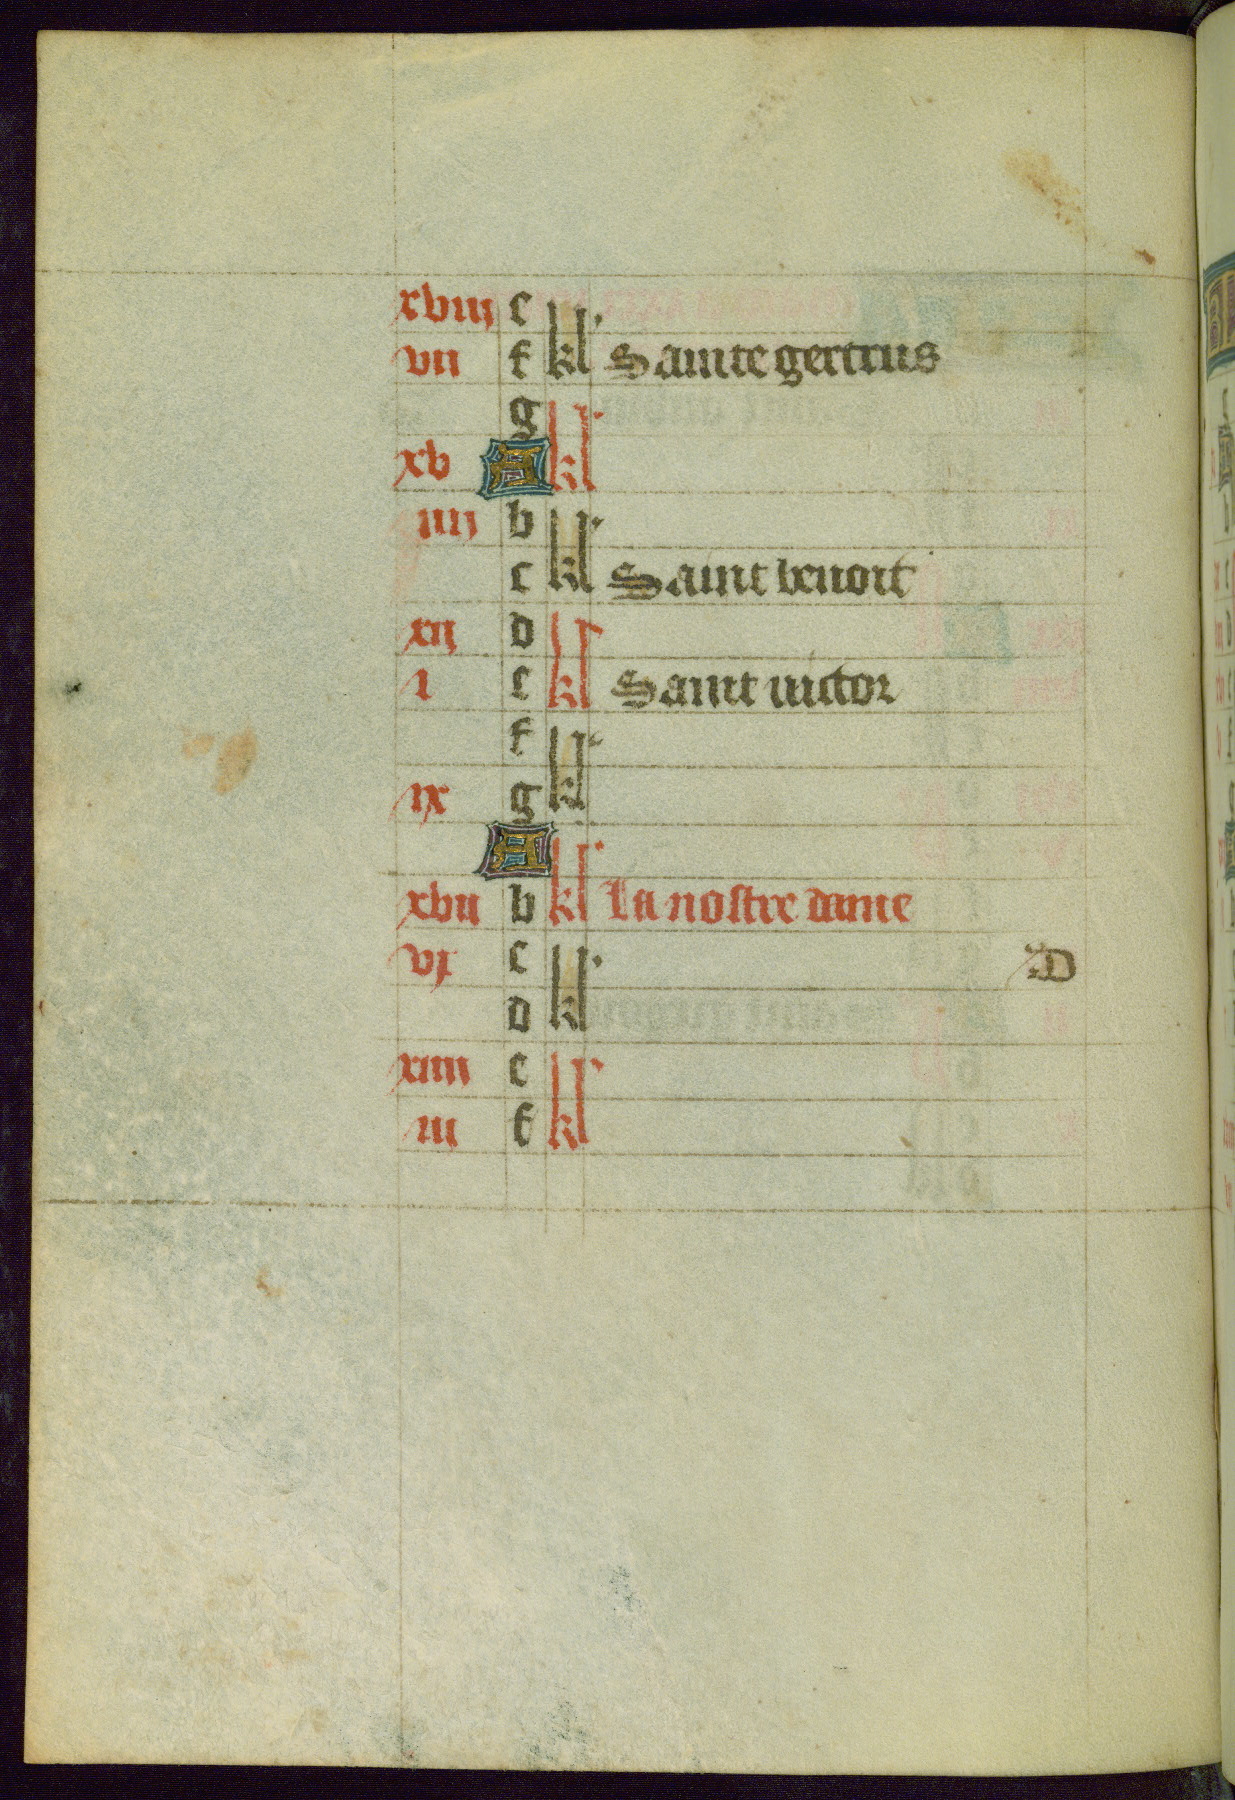 xviii e
vii f kl Sainte gertrus
g
xv A kl
iiii b
c kl Saint benoit
xii d
i e kl Saint victor
f
ix g kl
A
xvii b kl La nostre dame
vi c D
d kl
xiiii e
iii f kl